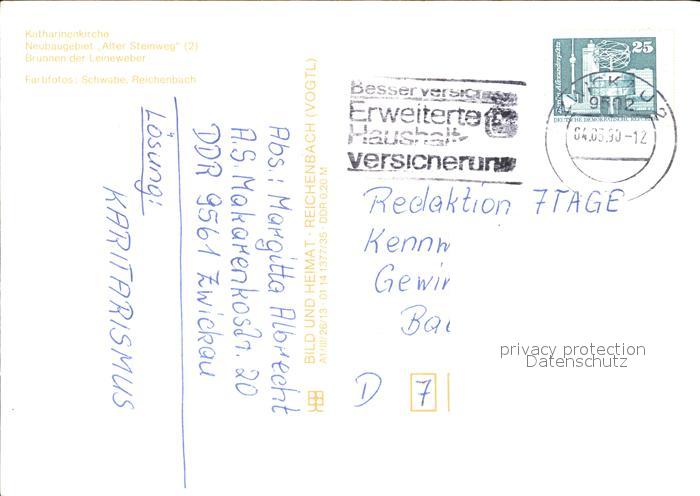 Katharinenkirche
Neubaugebiet „Alter Steinweg" (2)
Brunnen der Leineweber
Farbfotos: Schwabe, Reichenbach
Lösung:
KARITARISMUS
Abs.: Margitta Albrecht
A.S. Makarenkostr. 20
DDR 9561 Zwickau
BILD UND HEIMAT · REICHENBACH (VOGTL)
A1/III/26/13 · 01 14 1377/35 · DDR 0,20 M
Besser versich
Erweiterte
Haushalt-
versicherun
25
Berlin, Alexanderplatz
DEUTSCHE DEMOKRATISCHE REPUBLIK
ZWICKAU 2
9502
04.05.90-12
Redaktion 7TAGE
Kennw
Gewin
Bad
D 7
privacy protection
Datenschutz